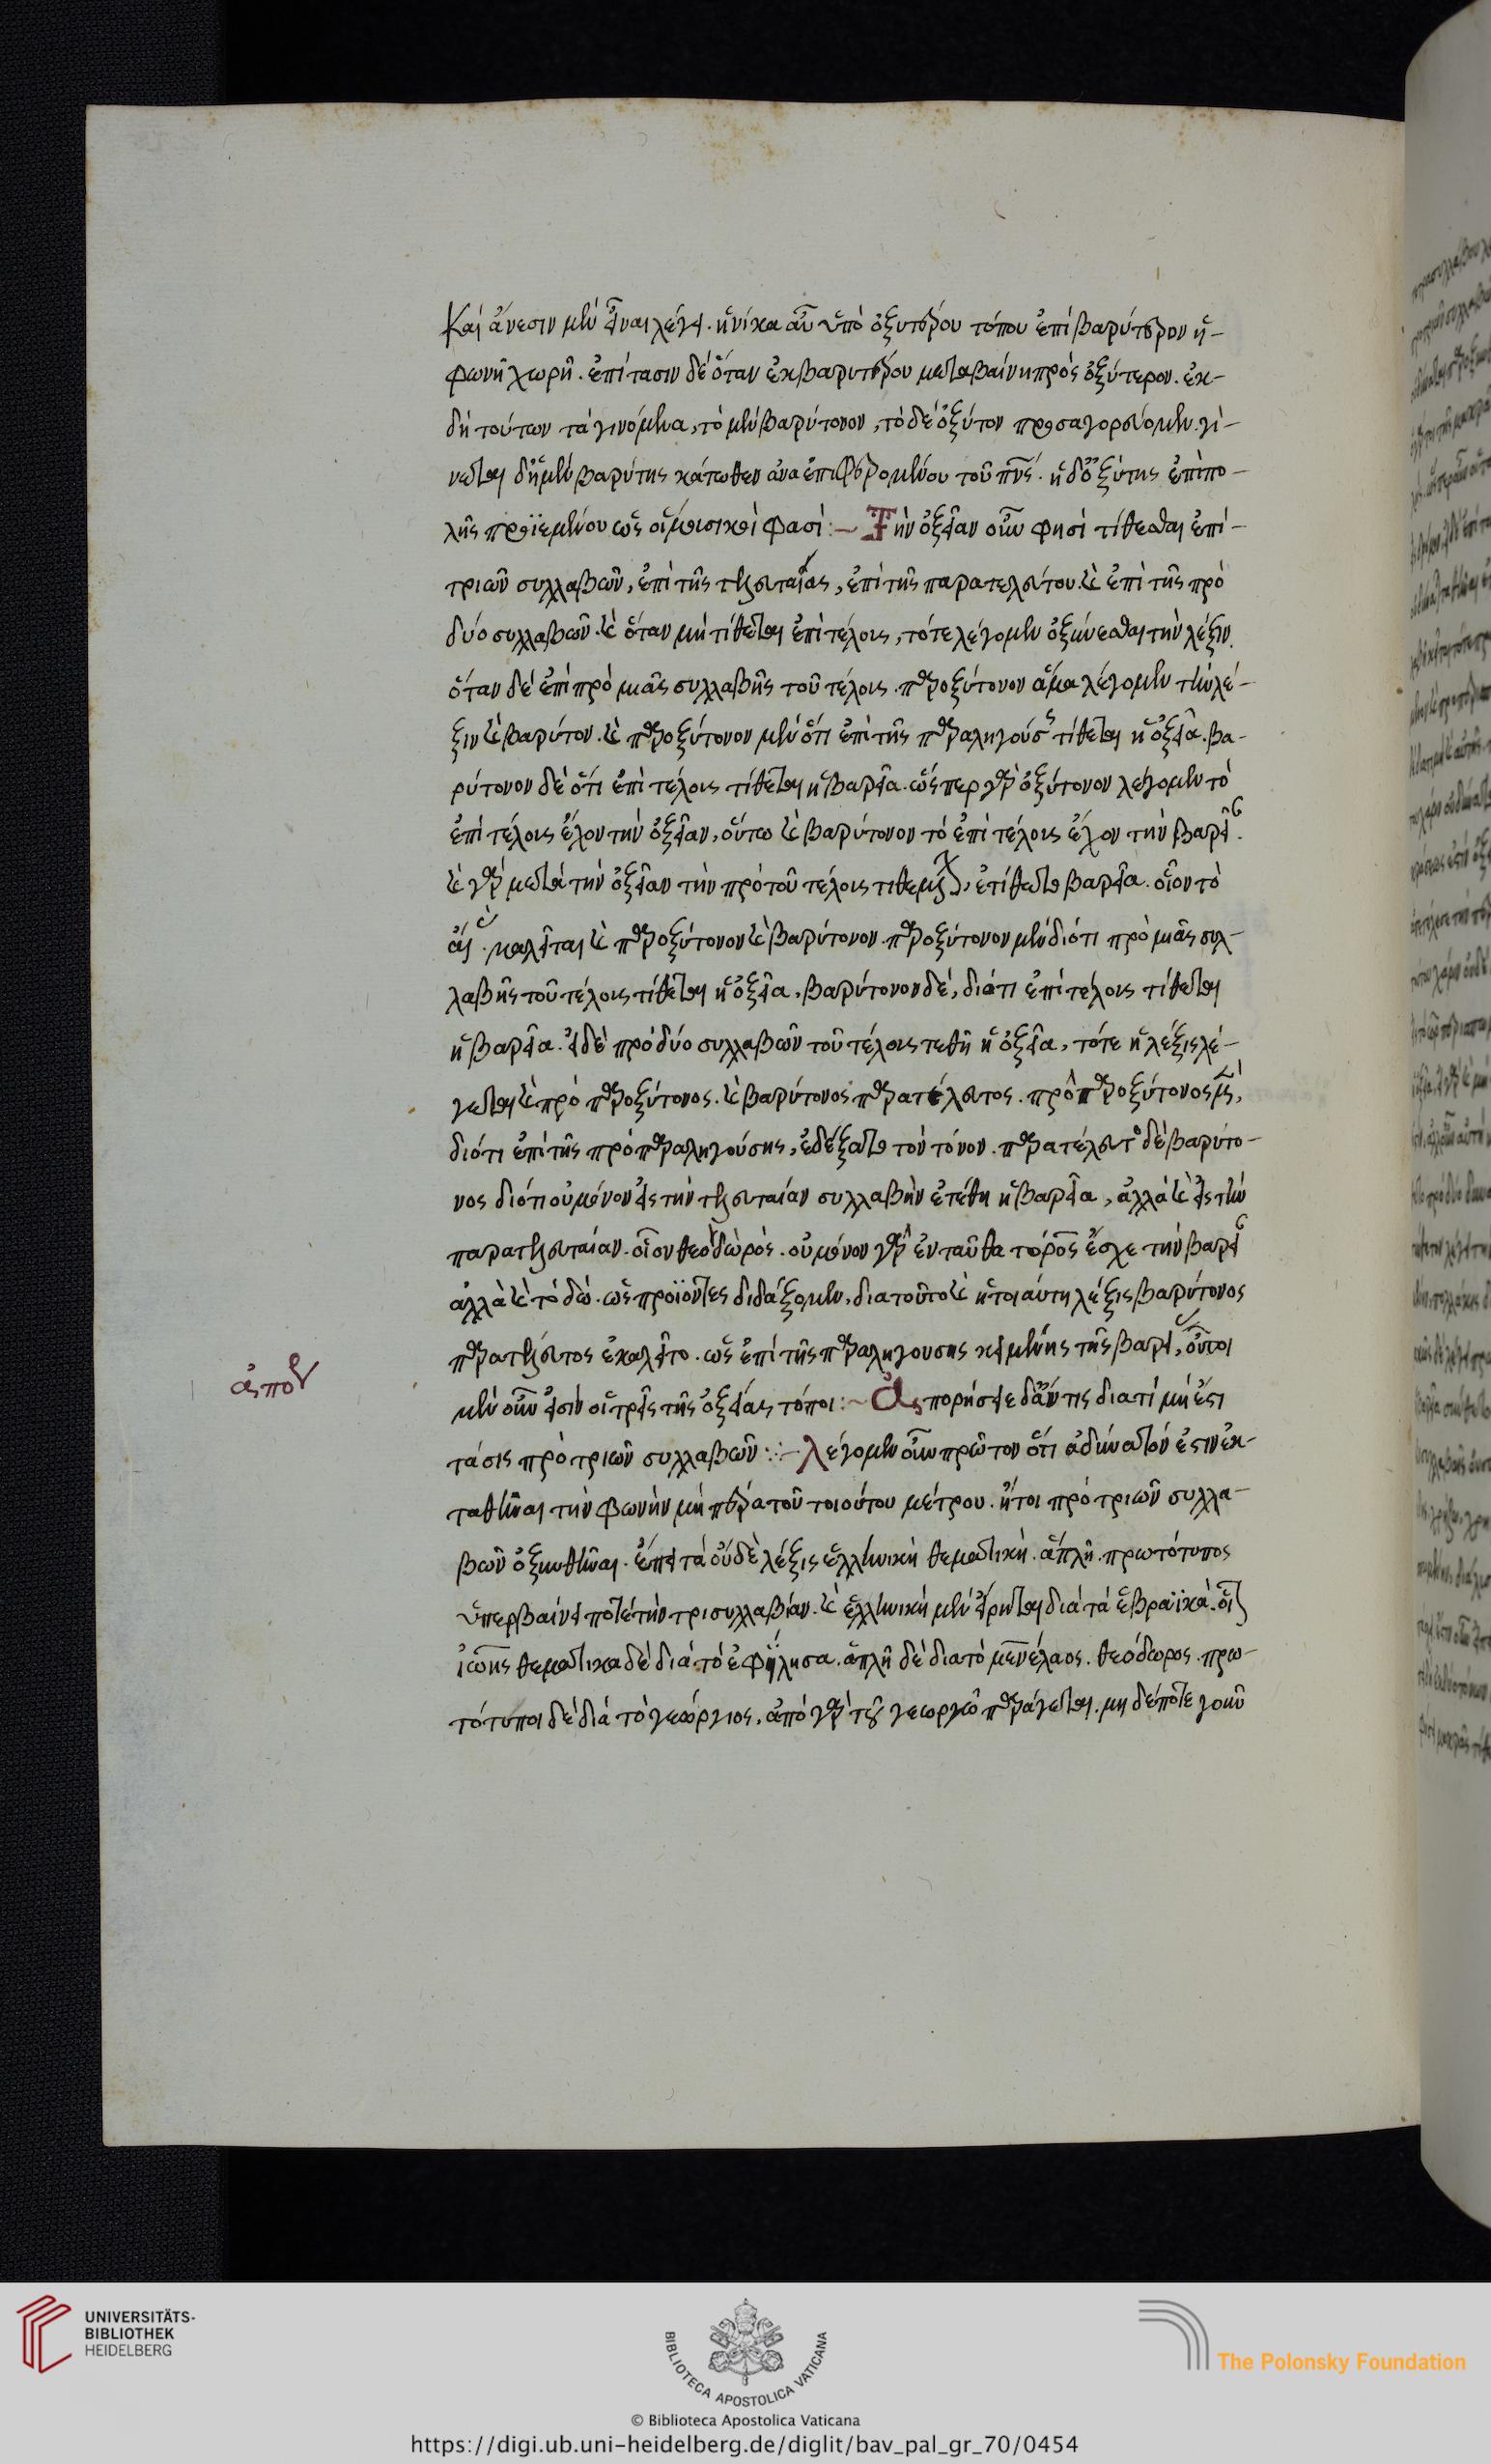 Καὶ ἄνεσιν μὲν εἶναι λέγει. ἡνίκα ἂν ὑπὸ ὀξυτέρου τόπου ἐπὶ βαρύτερον ἡ-
φωνὴ χωρῆ. ἐπίτασιν δὲ ὅταν ἐκ βαρυτέρου μεταβαίνη πρὸς ὀξύτερον. ἐκ-
δὴ τούτων τὰ γινόμενα, τὸ μὲν βαρύτονον, τὸ δὲ ὀξύτον προσαγορεύομεν. γί-
νεται δ' ἡ μὲν βαρύτης κάτωθεν ἀναἐπιφερομένου τοῦ πνς. ἡ δ' ὀξύτης ἐπιπο-
λῆς προϊεμένου ὡς οἱ μουσικοί φασί :~ Τὴν ὀξεῖαν οὖν φησὶ τίθεσθαι ἐπὶ-
τριῶν συλλαβῶν, ἐπὶ τῆς τελευταίας, ἐπὶ τῆς παρατελεύτου. καὶ ἐπὶ τῆς πρὸ
δύο συλλαβῶν. καὶ ὅταν μὴ τίθεται ἐπὶ τέλους, τότε λέγομεν ὀξύνεσθαι τὴν λέξιν.
ὅταν δὲ ἐπὶ πρὸ μιᾶς συλλαβῆς τοῦ τέλους. παροξύτονον ἅμα λέγομεν τὴν λέ-
ξιν καὶ βαρύτον. καὶ παροξύτονον μὲν ὅτι ἐπὶ τῆς παραληγούσης τίθεται ἡ ὀξεῖα. βα-
ρύτονον δὲ ὅτι ἐπὶ τέλους τίθεται ἡ βαρεῖα. ὥσπερ γὰρ ὀξύτονον λέγομεν τὸ
ἐπὶ τέλους ἔχον τὴν ὀξεῖαν, οὕτω καὶ βαρύτονον τὸ ἐπὶ τέλους ἔχον τὴν βαρεῖαν.
καὶ γὰρ μετὰ τὴν ὀξεῖαν τὴν πρὸ τοῦ τέλους ἐτίθετο βαρεῖα. οἷον τὸ
καλεῖται καὶ παροξύτονον καὶ βαρύτονον. παροξύτονον μὲν διότι πρὸ μιᾶς συλ-
λαβῆς τοῦ τέλους τίθεται ἡ ὀξεῖα, βαρύτονον δὲ, διάτι ἐπὶ τέλους τίθεται
ἡ βαρεῖα. εἰ δὲ πρὸ δύο συλλαβῶν τοῦ τέλους τεθῆ ἡ ὀξεῖα, τότε ἡ λέξις λέ-
γεται καὶ πρὸ παροξύτονος. καὶ βαρύτονος παρατέλευτος. πρὸ παροξύτονος μὲν,
διότι ἐπὶ τῆς πρὸ παραληγούσης, ἐδέξατο τὸν τόνον. παρατέλευτος δὲ βαρύτο-
νος διότι οὐ μόνον εἰς τὴν τελευταίαν συλλαβὴν ἐτέθη ἡ βαρεῖα, ἀλλὰ καὶ εἰς τὴν
παρατελευταίαν. οἷον θεόδὼρὸς. οὐ μόνον γὰρ ἐνταῦθα τὸ ρος ἔσχε τὴν βαρεῖαν
ἀλλὰ καὶ τὸ δω. ὡς προϊόντες διδάξομεν. διατοῦτο καὶ ἡ τοιαύτη λέξις βαρύτονος
παρατέλευτος ἐκαλεῖτο. ὡς ἐπὶ τῆς παραληγουσης κειμένης τῆς βαρείας, οὗτοι
μὲν οὖν εἰσὶν οἱ τρεῖς τῆς ὀξείας τόποι :~ Ἀπορήσειε δ' ἄν τις διατί μὴ ἔστι
τάσις πρὸ τριῶν συλλαβῶν :~ λέγομεν οὖν πρῶτον ὅτι ἀδύνατόν ἐστιν ἐκ-
ταθῆναι τὴν φωνὴν μὴ πέρα τοῦ τοιούτου μέτρου. ἤτοι πρὸ τριῶν συλλα-
βῶν ὀξυνθῆναι. ἔπειτα οὐδὲ λέξις ἑλληνικὴ θεματικὴ. ἁπλῆ. πρωτότυπος
ὑπερβαίνει ποτὲ τὴν τρισυλλαβίαν. καὶ ἑλληνικὴ μὲν εἴρηται διὰ τὰ ἑβραϊκὰ.
ἰωνης θεματικα δὲ διὰ τὸ ἐφίλησα. ἁπλῆ δὲ διατὸ μενέλαος. θεόδωρος. πρω-
τότυποι δὲ διὰ τὸ γεώργιος, ἀπὸ γὰρ τοῦ γεωργῶ παράγεται. μη δέποτε γοῦν